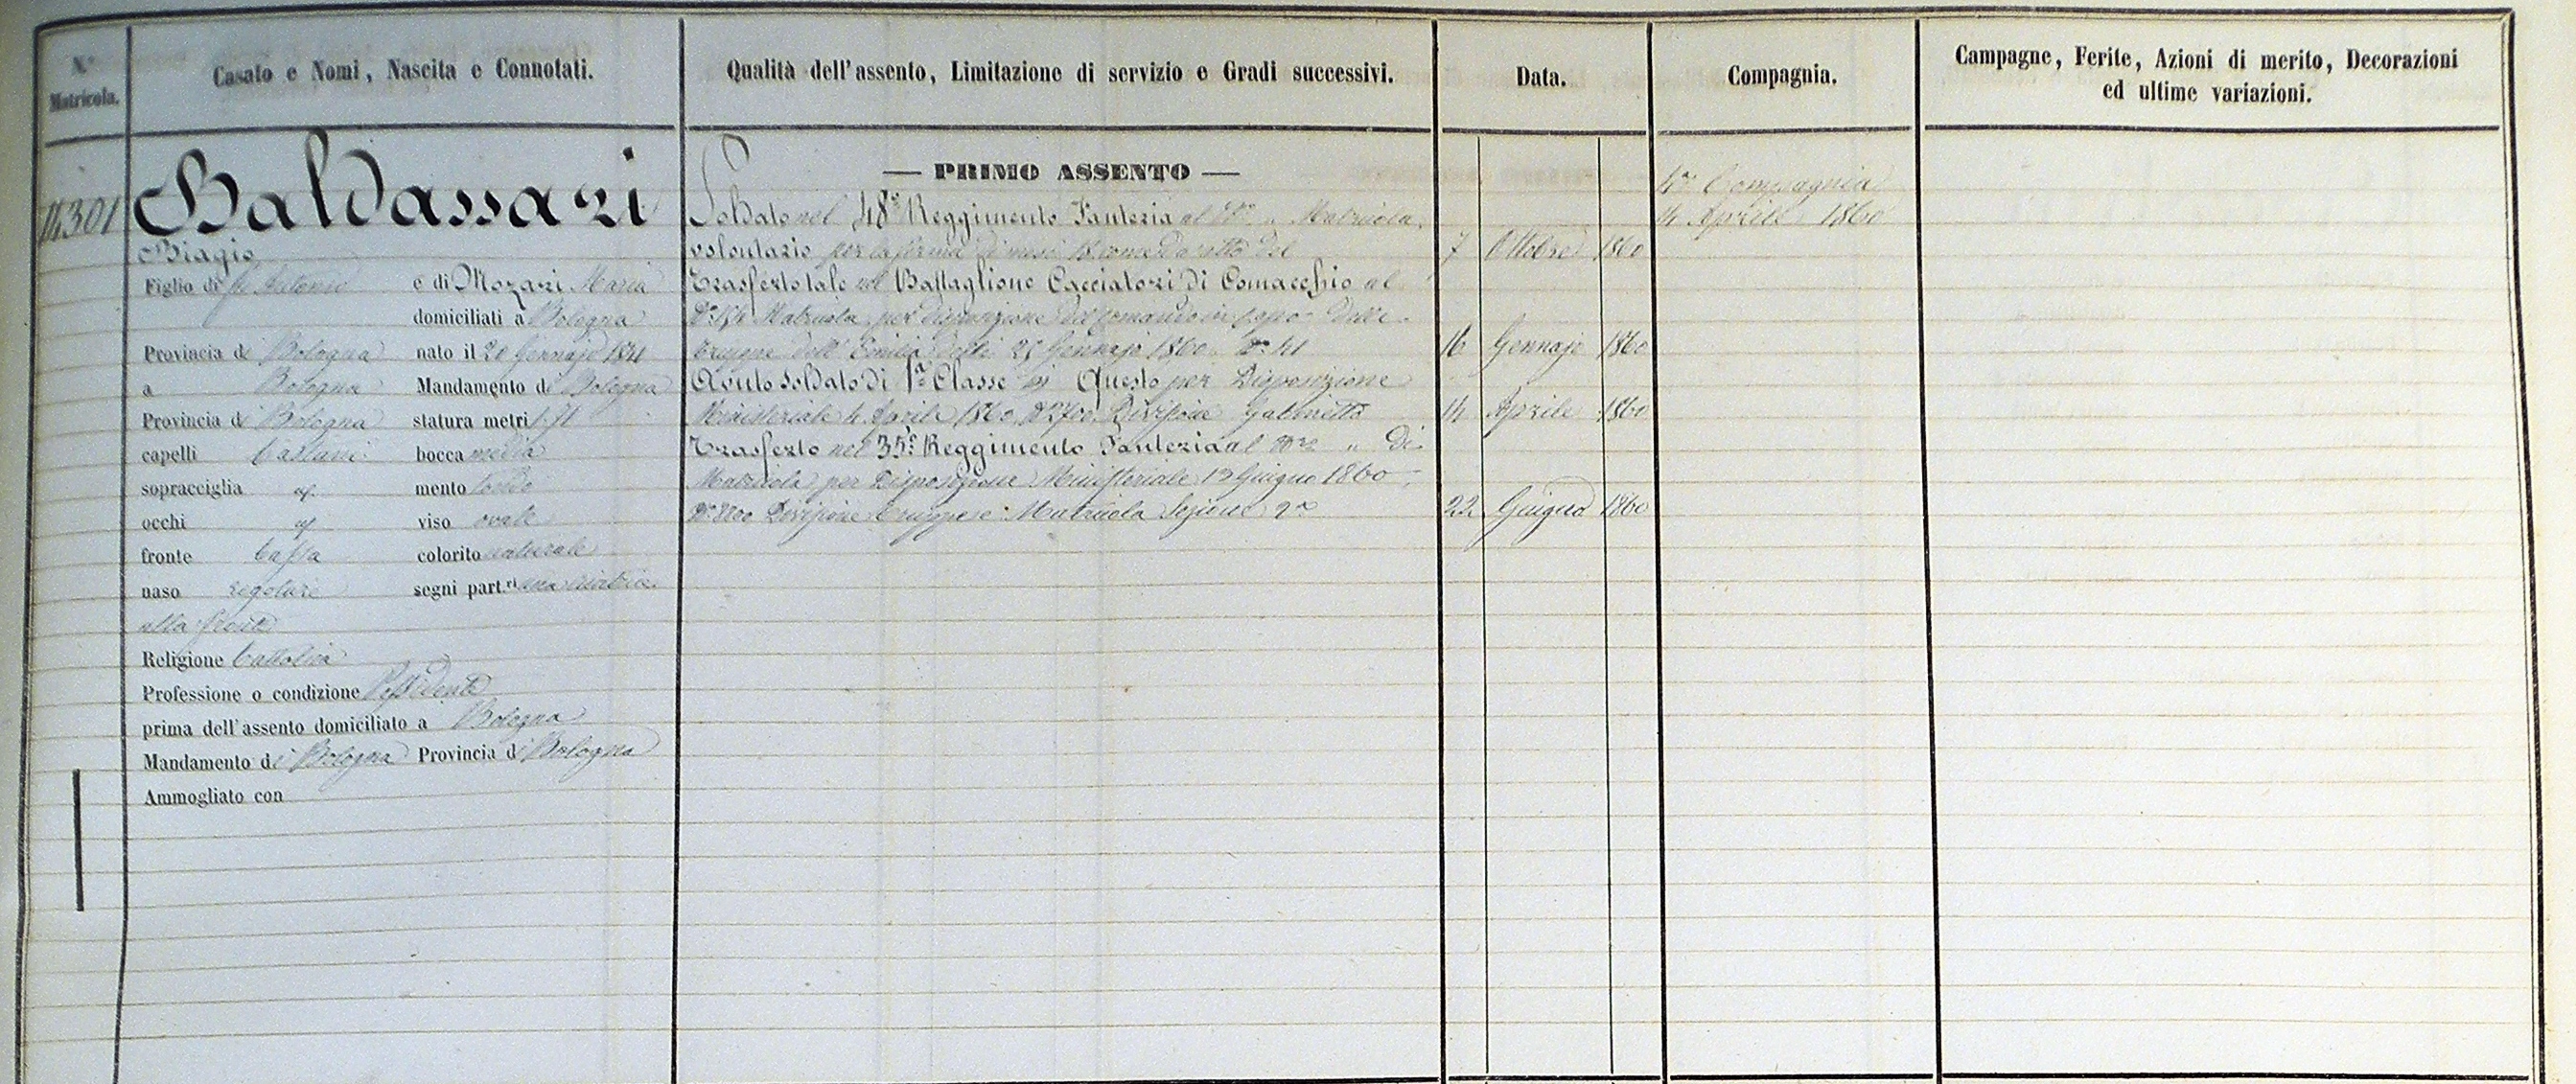 N.º Matricola.
Casato e Nomi, Nascita e Connotati.
Qualità dell'assento, Limitazione di servizio e Gradi successivi.
Data.
Compagnia.
Campagne, Ferite, Azioni di merito, Decorazioni
ed ultime variazioni.
14301
Baldassari
Biagio
Figlio di fu Antonio e di Mozari Maria
domiciliati a Bologna
Provincia di Bologna nato il 20 Gennajo 1841
a Bologna Mandamento di Bologna
Provincia di Bologna statura metri 1.71
capelli Castani bocca media
sopracciglia id. mento tondo
occhi id. viso ovale
fronte bassa colorito naturale
naso regolare segni part.ri una cicatrice
alla fronte
Religione Cattolica
Professione o condizione Possidente
prima dell'assento domiciliato a Bologna
Mandamento di Bologna Provincia di Bologna
Ammogliato con
— PRIMO ASSENTO —
Soldato nel 48º Reggimento Fanteria al Nº " Matricola,
volontario per la ferma di mesi 18 come da atto del 7 Ottobre 1860
Trasferto tale nel Battaglione Cacciatori di Comacchio al
Matricola, per disposizione del Comando in Capo delle
truppe dell'Emilia delli Gennajo 1860 Nº 41 16 Gennajo 1860
Avuto soldato di 1ª Classe in Questo per Disposizione
Ministeriale 4 Aprile 1860 Nº 2700 Divisione Gabinetto 14 Aprile 1860
Trasferto nel 35º Reggimento Fanteria al Nº " Di
Matricola, per Disposizione Ministeriale 13 Giugno 1860
Divisione Truppe Matricola Sezione 2ª 22 Giugno 1860
4ª Compagnia
14 Aprile 1860